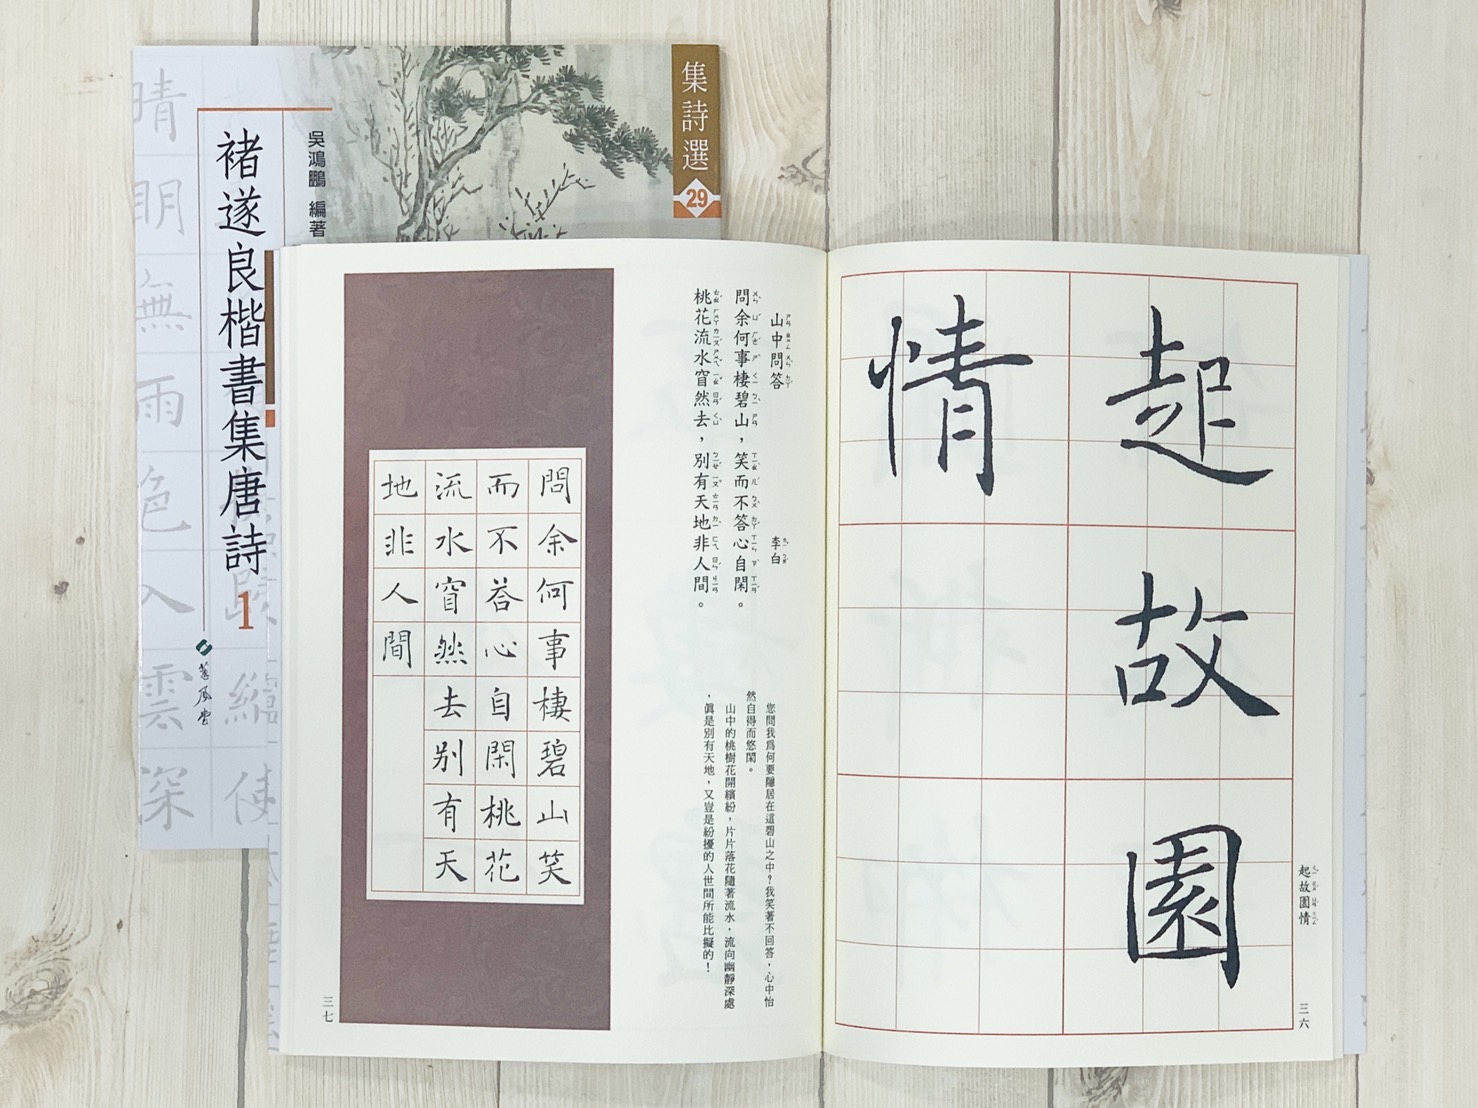 集詩選
29
吳鴻鵬 編著
褚遂良楷書集唐詩
1
蕙風堂
晴
明
無
雨
色
入
雲
深
縮
使
起故園
情
起故園情
三六
山中問答
李白
問余何事棲碧山，笑而不答心自閑。
桃花流水窅然去，別有天地非人間。
您問我爲何要隱居在這碧山之中？我笑著不回答，心中怡
然自得而悠閑。
山中的桃樹花開繽紛，片片落花隨著流水，流向幽靜深處
，眞是別有天地，又豈是紛擾的人世間所能比擬的！
問余何事棲碧山笑
而不荅心自閑桃花
流水窅然去別有天
地非人間
三七